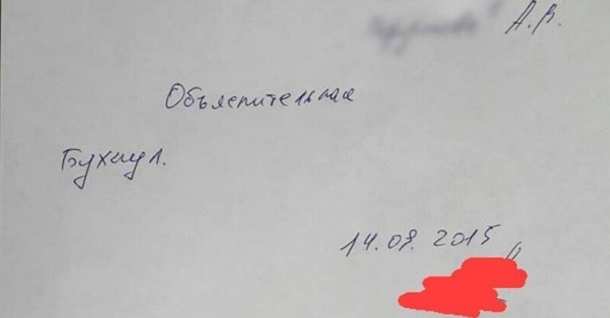 А.В.
Объяснительная
Бухнул.
14.08.2015